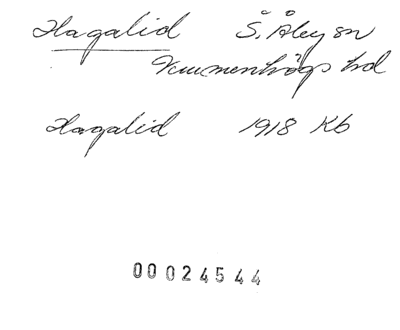 Hagalid S. Åby sn
Vemmenhögs hd
Hagalid 1918 Kb
00024544